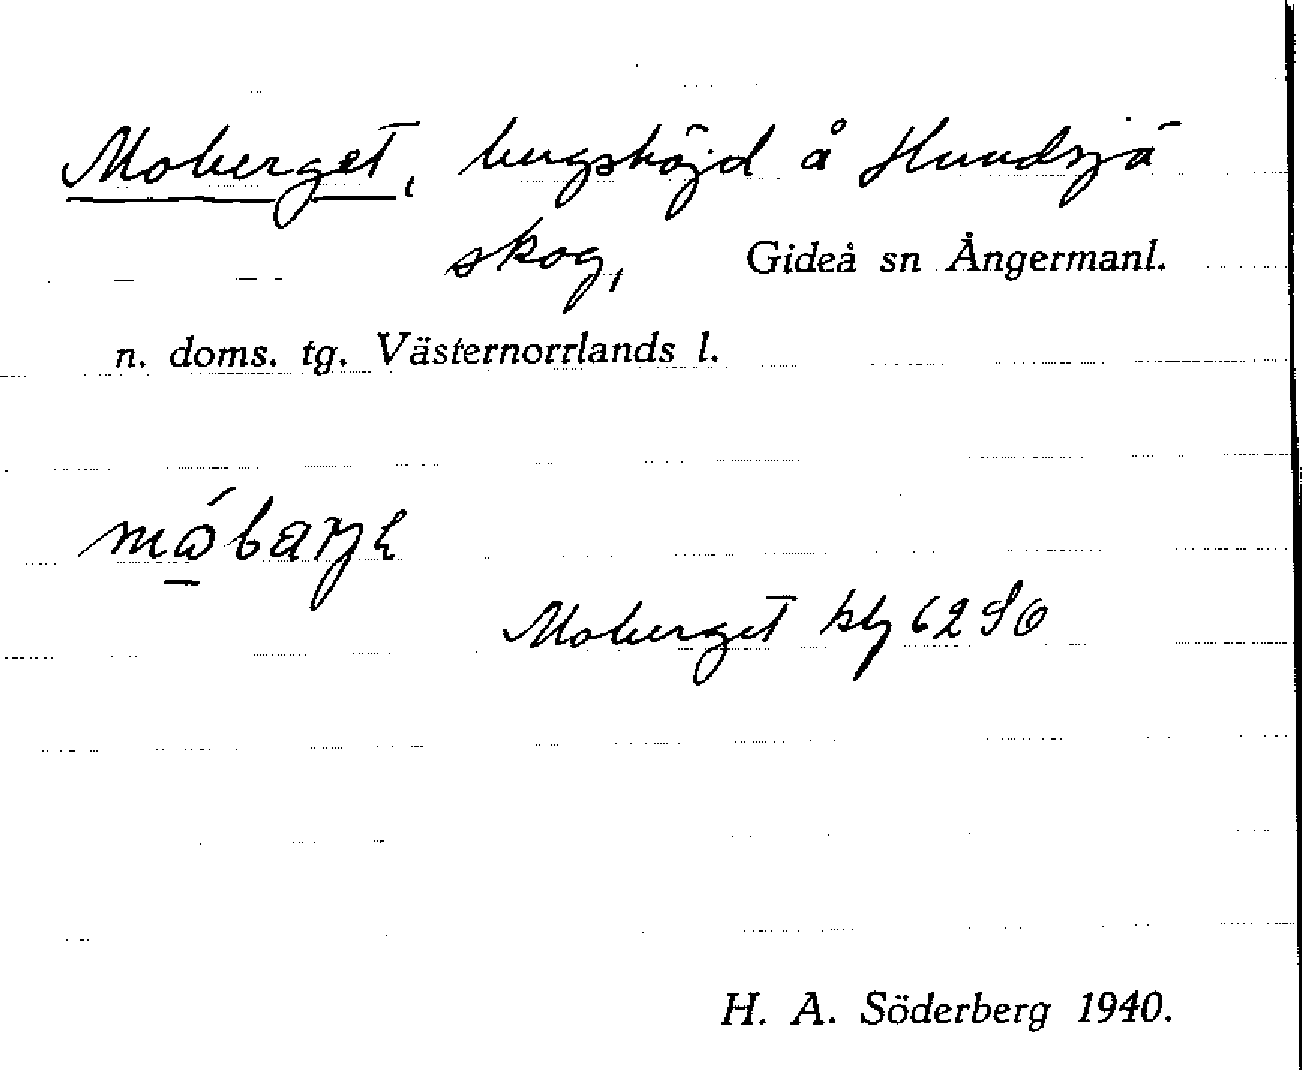 Moberget, bergshöjd å Hundsjö
skog, Gideå sn Ångermanl.
n. doms. tg. Västernorrlands l.
Moberget kbl 6290
H. A. Söderberg 1940.